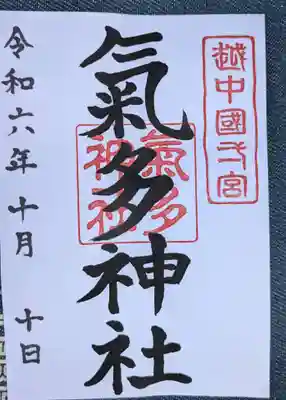 越中國弌宮
氣多神社
氣多
神社
令和六年十月十日